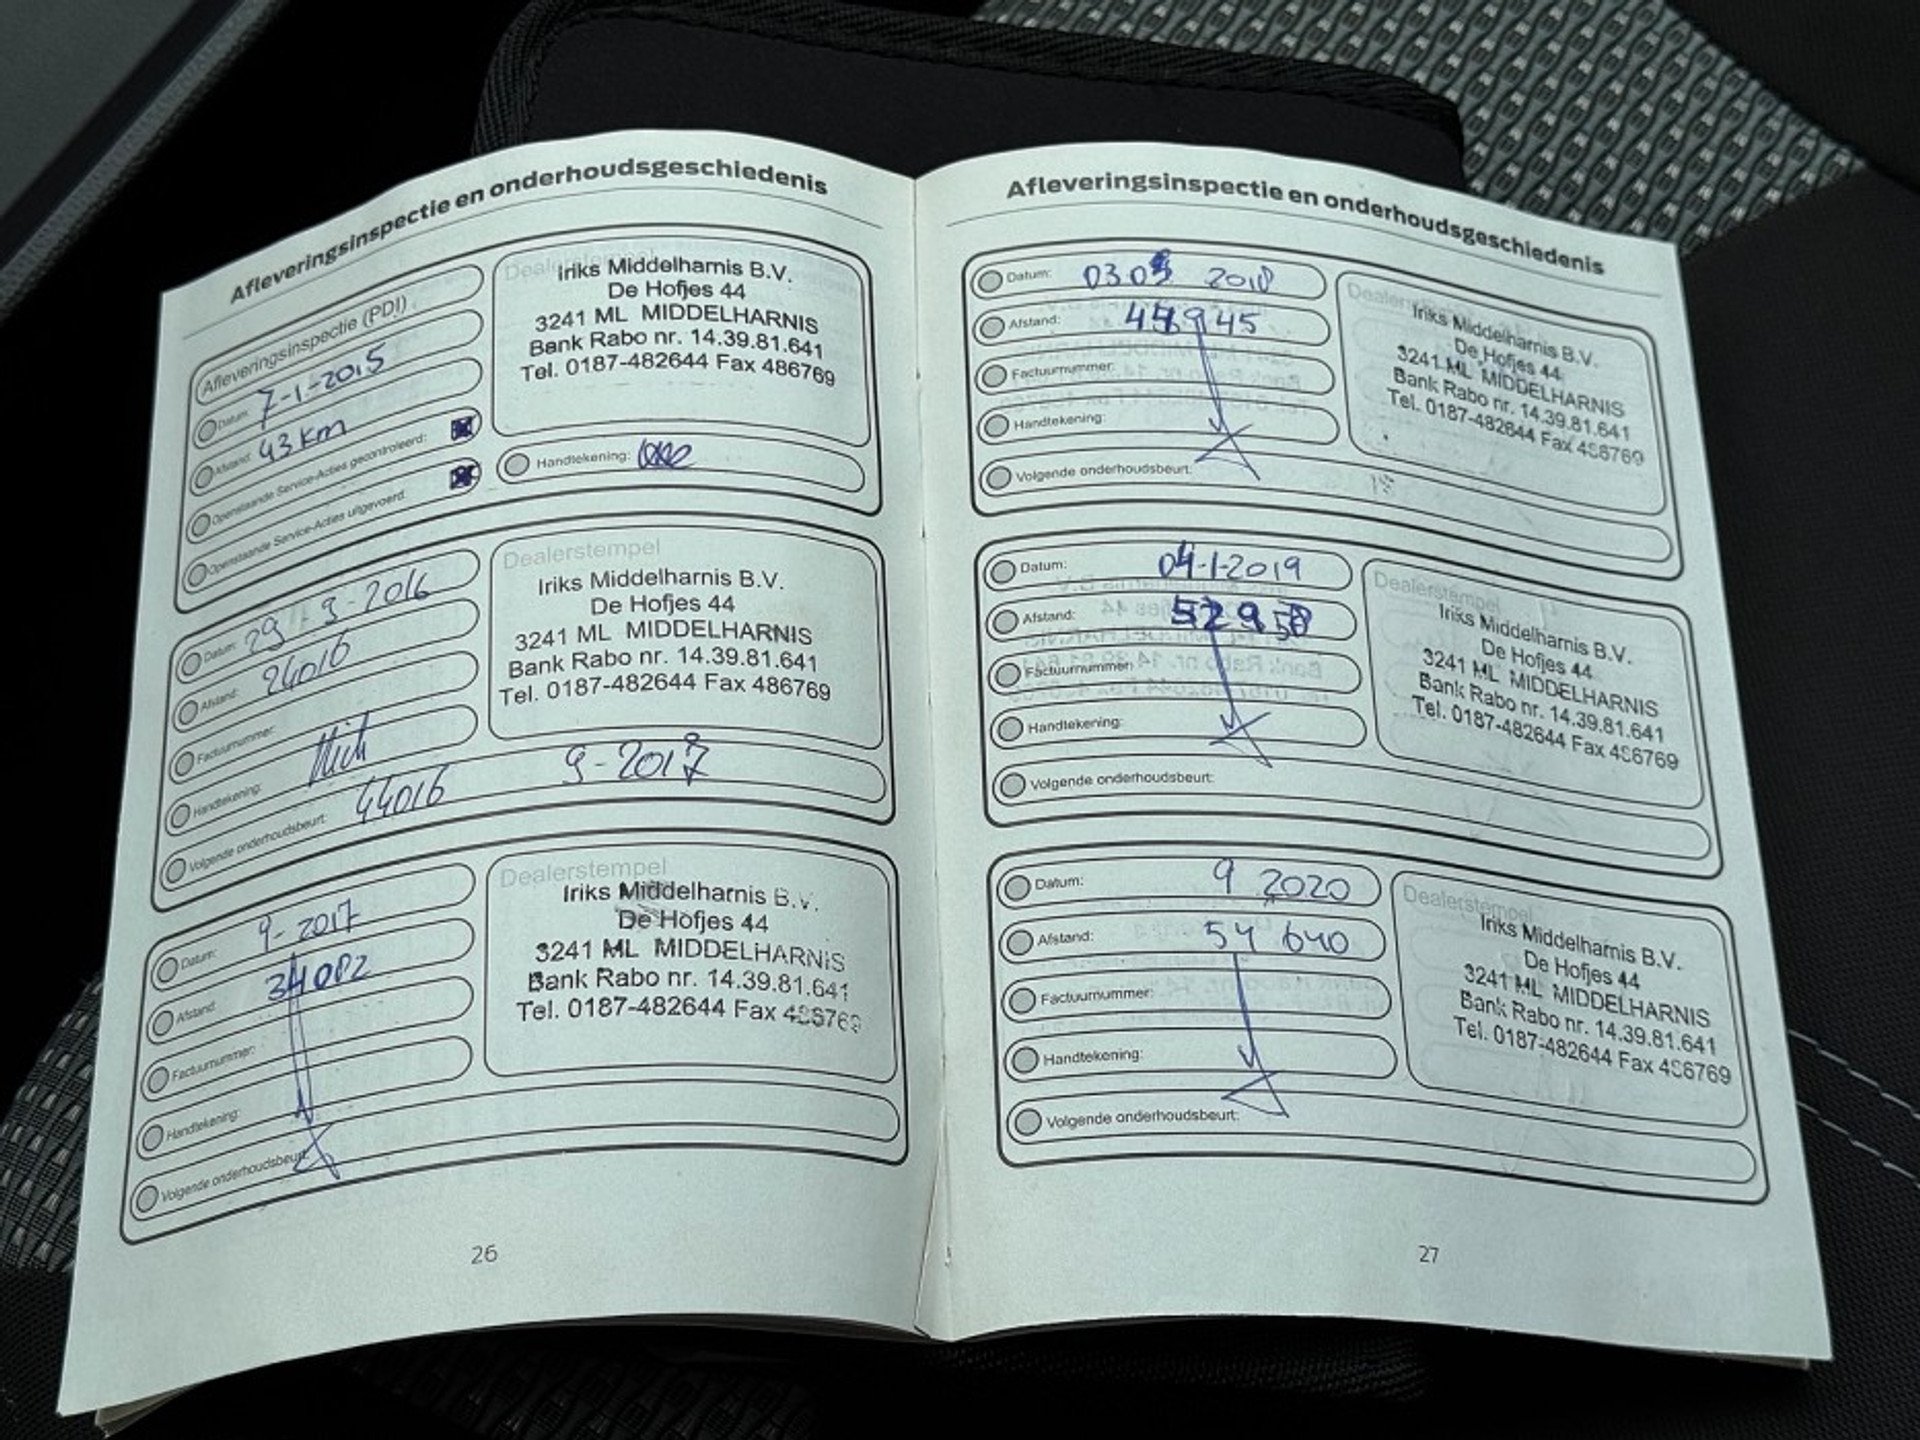 Afleveringsinspectie en onderhoudsgeschiedenis
Afleveringsinspectie (PDI)
Datum: 7-1-2015
Afstand: 43 km
Openstaande Service-Acties gecontroleerd:
Openstaande Service-Acties uitgevoerd:
Iriks Middelharnis B.V.
De Hofjes 44
3241 ML MIDDELHARNIS
Bank Rabo nr. 14.39.81.641
Tel. 0187-482644 Fax 486769
Handtekening:
Datum: 29-9-2016
Afstand: 24016
Factuurnummer:
Handtekening:
Volgende onderhoudsbeurt: 44016 9-2017
Dealerstempel
Iriks Middelharnis B.V.
De Hofjes 44
3241 ML MIDDELHARNIS
Bank Rabo nr. 14.39.81.641
Tel. 0187-482644 Fax 486769
Datum: 9-2017
Afstand: 34082
Factuurnummer:
Handtekening:
Volgende onderhoudsbeurt:
Dealerstempel
Iriks Middelharnis B.V.
De Hofjes 44
3241 ML MIDDELHARNIS
Bank Rabo nr. 14.39.81.641
Tel. 0187-482644 Fax 486769
26
Afleveringsinspectie en onderhoudsgeschiedenis
Datum: 2018
Afstand:
Factuurnummer:
Handtekening:
Volgende onderhoudsbeurt:
Iriks Middelharnis B.V.
De Hofjes 44
3241 ML MIDDELHARNIS
Bank Rabo nr. 14.39.81.641
Tel. 0187-482644 Fax 486769
Datum: 04-1-2019
Afstand:
Factuurnummer:
Handtekening:
Volgende onderhoudsbeurt:
Dealerstempel
Iriks Middelharnis B.V.
De Hofjes 44
3241 ML MIDDELHARNIS
Bank Rabo nr. 14.39.81.641
Tel. 0187-482644 Fax 486769
Datum: 9 2020
Afstand: 54 640
Factuurnummer:
Handtekening:
Volgende onderhoudsbeurt:
Dealerstempel
Iriks Middelharnis B.V.
De Hofjes 44
3241 ML MIDDELHARNIS
Bank Rabo nr. 14.39.81.641
Tel. 0187-482644 Fax 486769
27